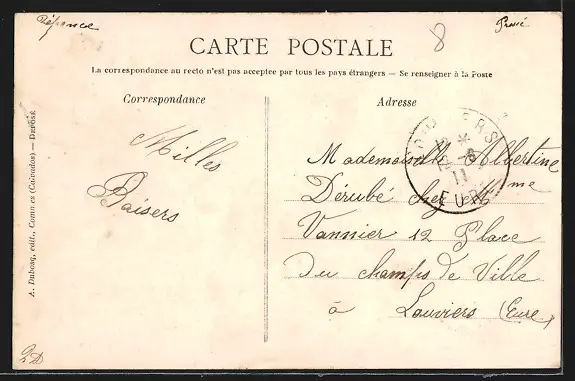 Réponse
Pressé
8
CARTE POSTALE
La correspondance au recto n'est pas acceptée par tous les pays étrangers — Se renseigner à la Poste
Correspondance
Adresse
Milles
Baisers
Mademoiselle Albertine
Dérubé chez Mme
Vannier 12 Place
Du champs de Ville
à Louviers (Eure)
A. Dubosq, édit., (Calvados) — DÉPOSÉ
EURE
11